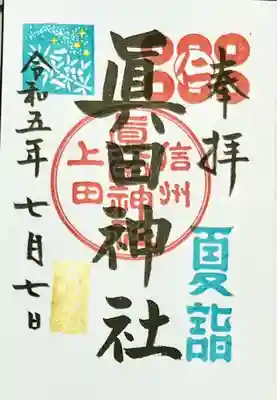 奉拝
夏詣
眞田神社
信州
上田
眞田神社
令和五年 七月七日